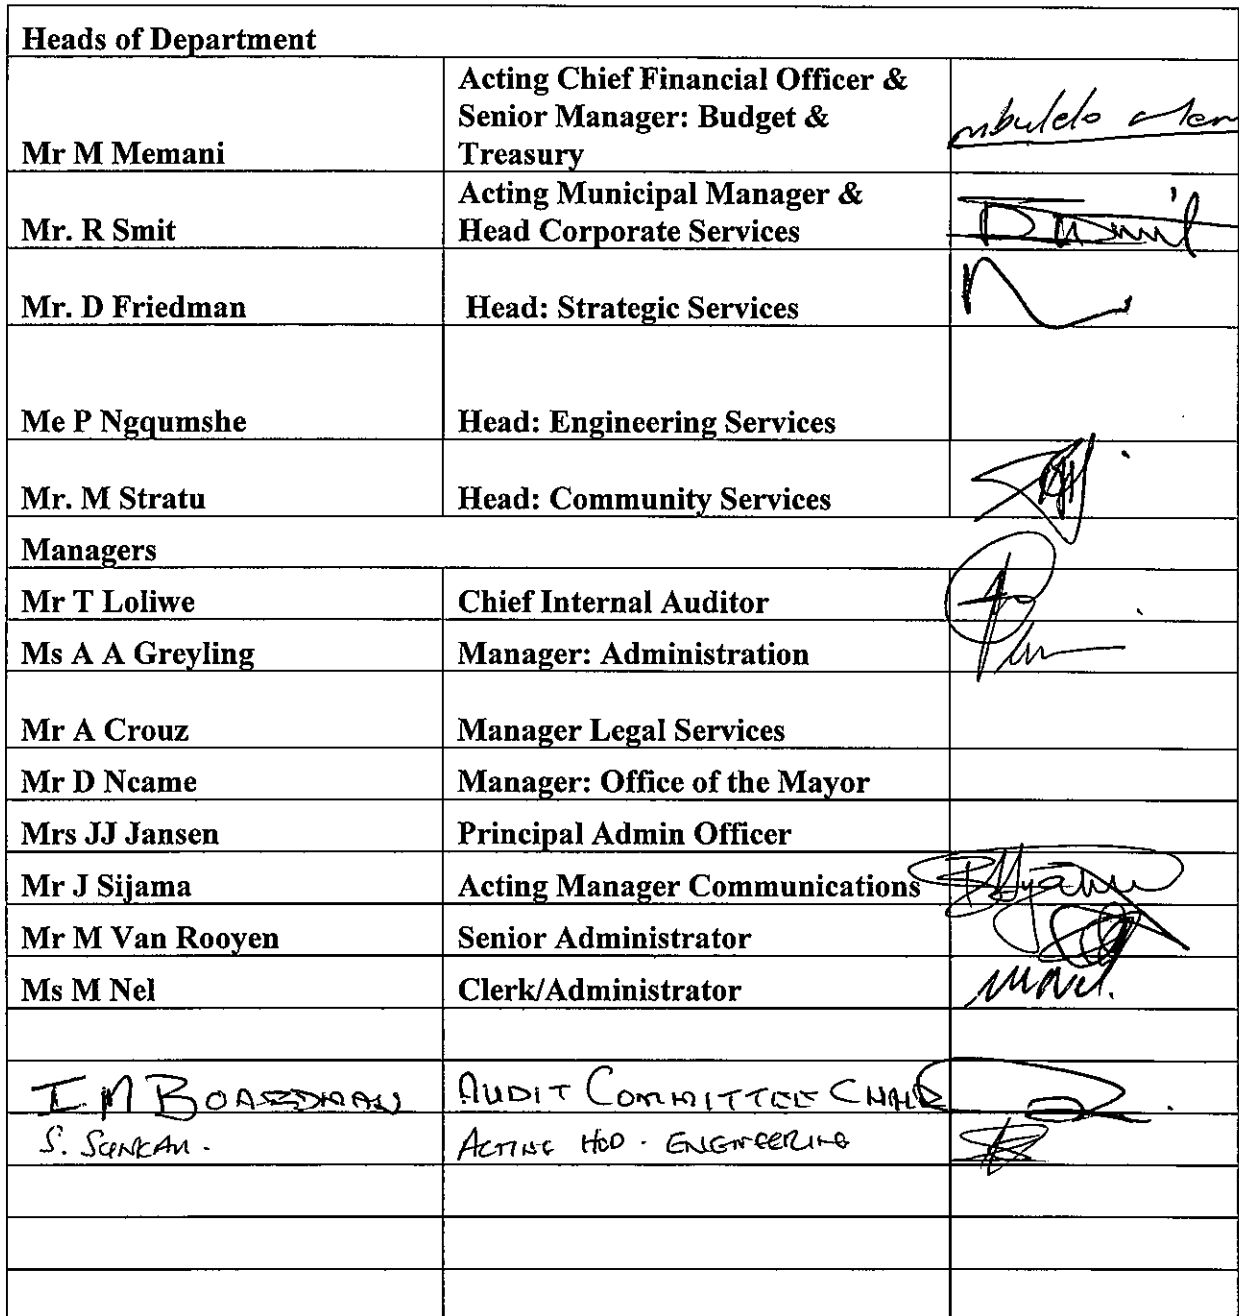 Heads of Department
Mr M Memani
Acting Chief Financial Officer &
Senior Manager: Budget &
Treasury
Mr. R Smit
Acting Municipal Manager &
Head Corporate Services
Mr. D Friedman
Head: Strategic Services
Me P Ngqumshe
Head: Engineering Services
Mr. M Stratu
Head: Community Services
Managers
Mr T Loliwe
Chief Internal Auditor
Ms A A Greyling
Manager: Administration
Mr A Crouz
Manager Legal Services
Mr D Ncame
Manager: Office of the Mayor
Mrs JJ Jansen
Principal Admin Officer
Mr J Sijama
Acting Manager Communications
Mr M Van Rooyen
Senior Administrator
Ms M Nel
Clerk/Administrator
MNel.
I M BOARDMAN
AUDIT COMMITTEE CHAIR
S.
ACTING HOD - ENGINEERING